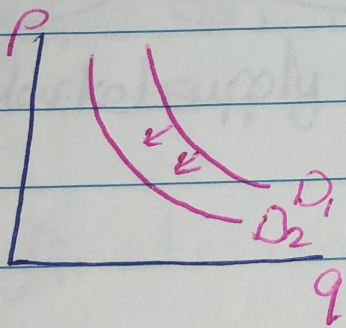 P
D₁
D₂
q